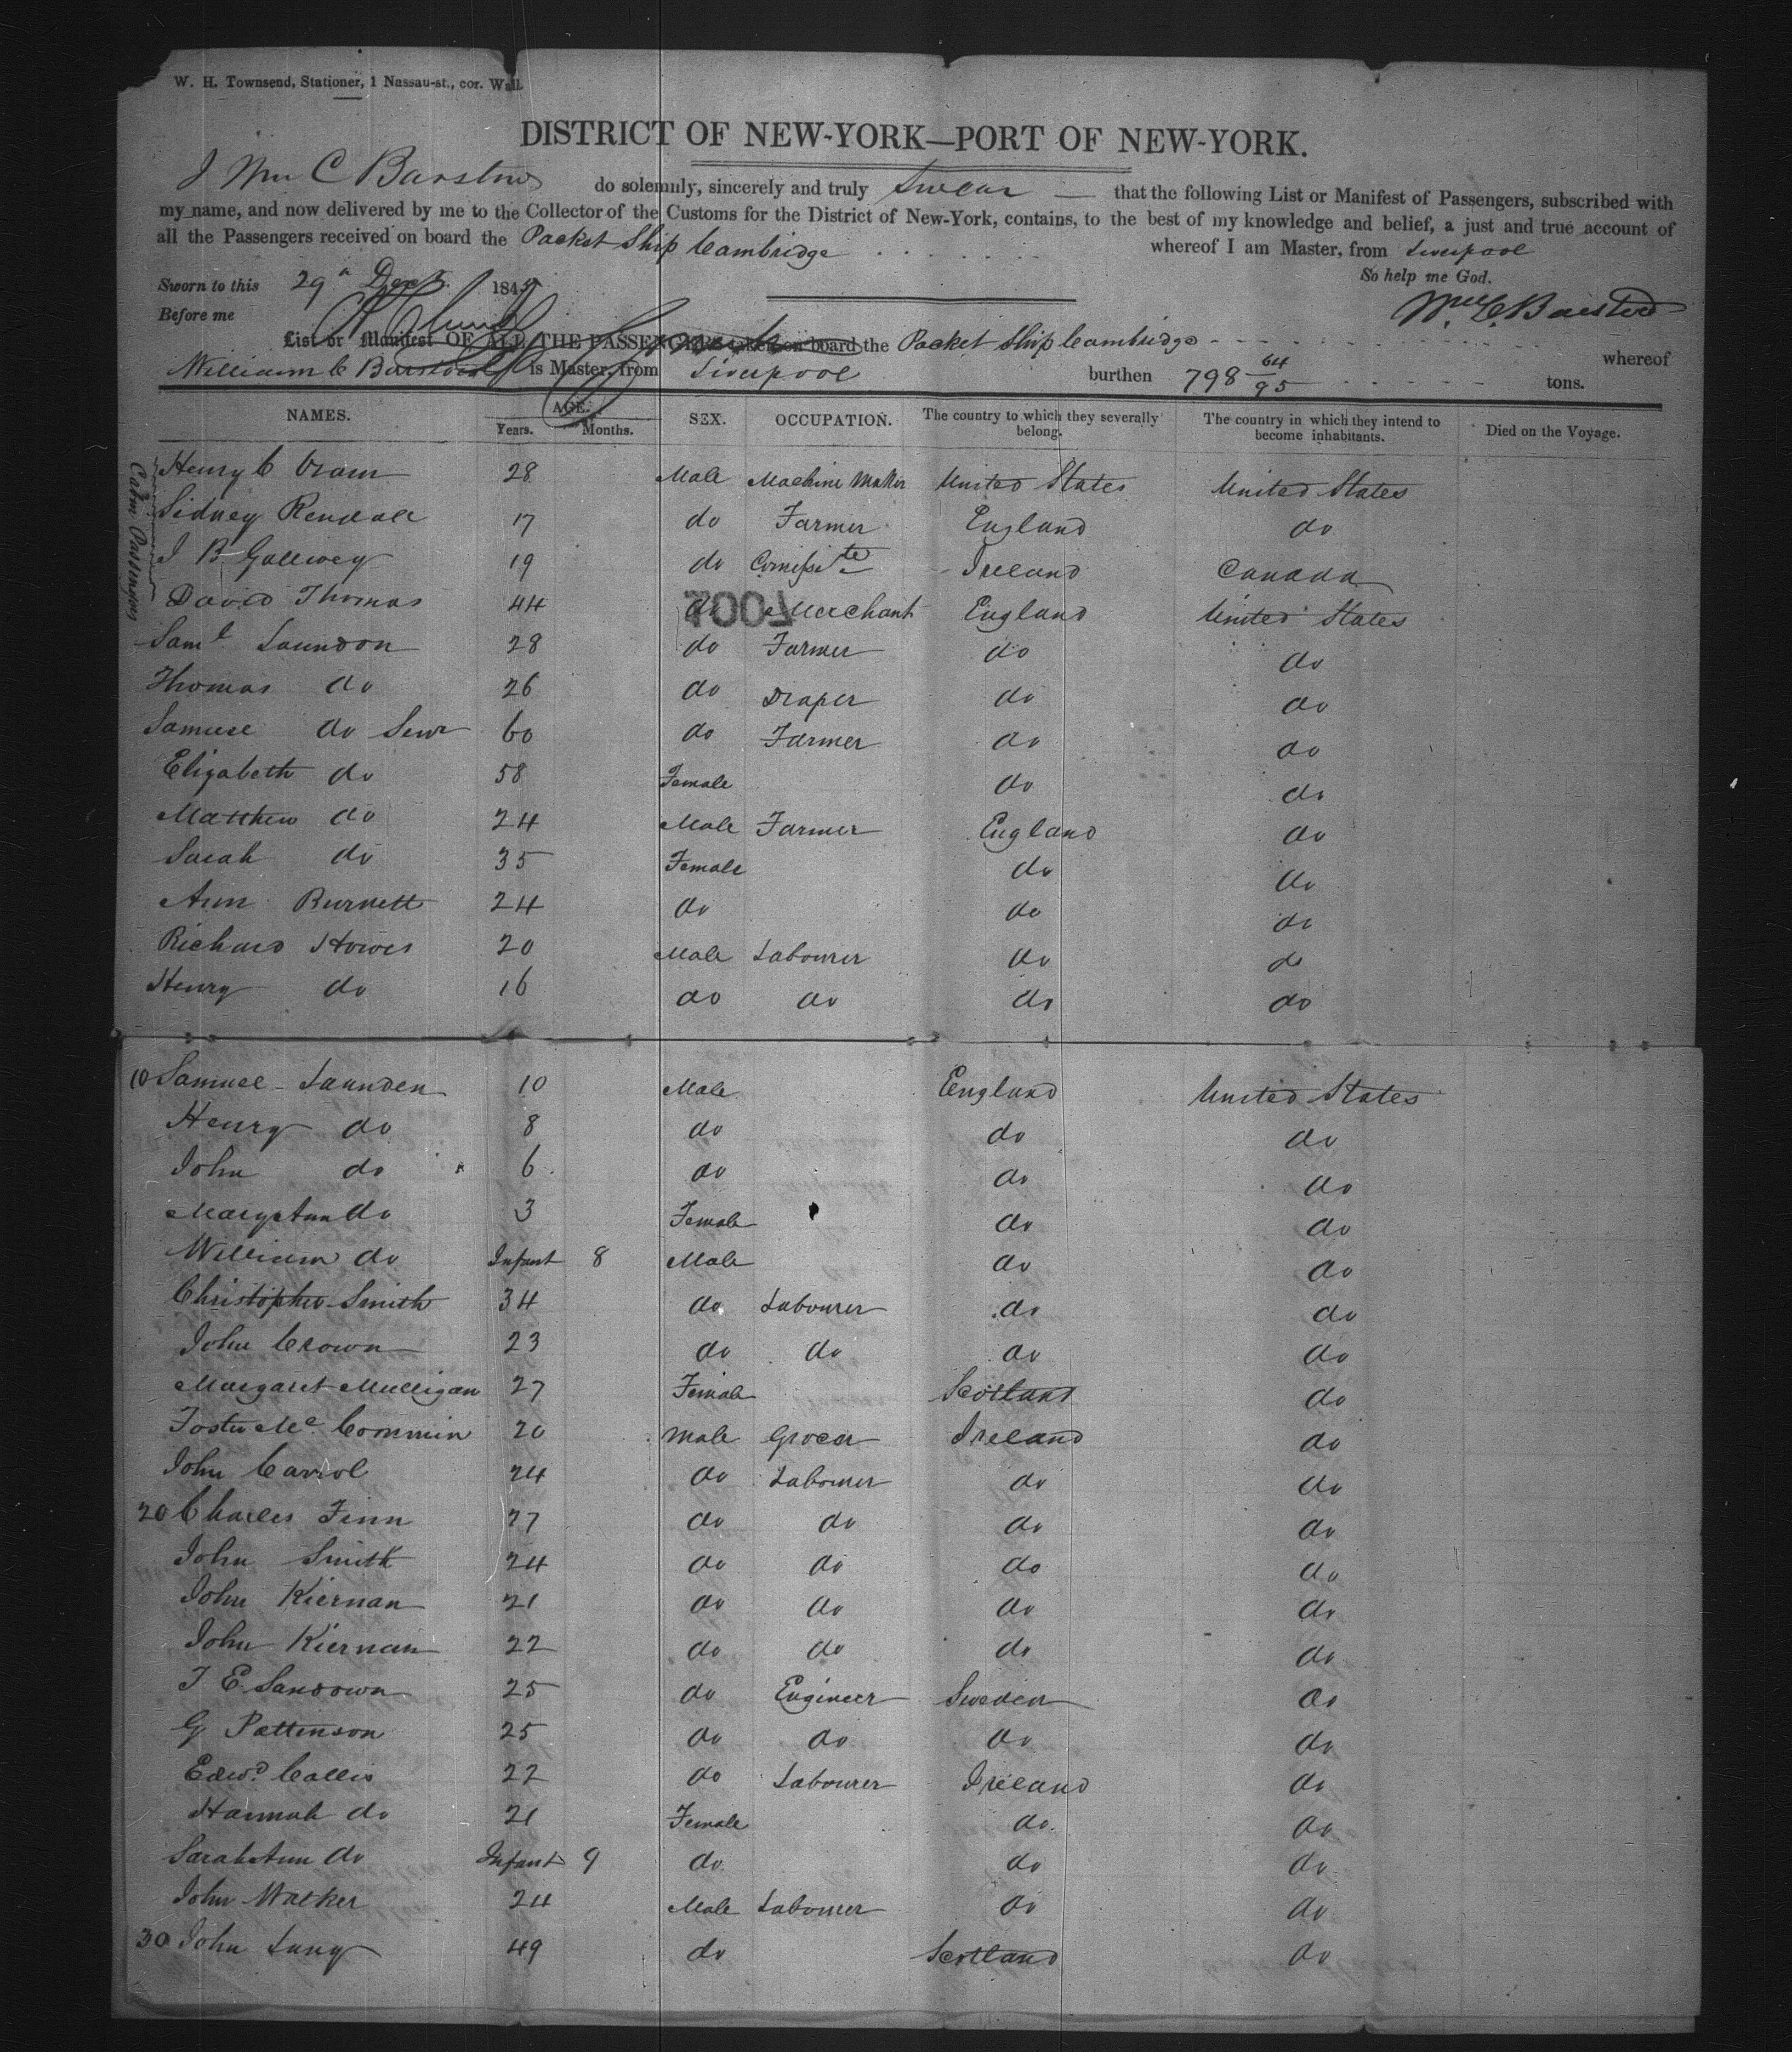 W. H. Townsend, Stationer, 1 Nassau-st., cor. Wall.
DISTRICT OF NEW-YORK—PORT OF NEW-YORK.
I Wm C Barstow do solemnly, sincerely and truly swear that the following List or Manifest of Passengers, subscribed with
my name, and now delivered by me to the Collector of the Customs for the District of New-York, contains, to the best of my knowledge and belief, a just and true account of
all the Passengers received on board the Packet Ship Cambridge whereof I am Master, from Liverpool
So help me God.
Sworn to this 29th 184
Before me
Wm C. Barstow
List or Manifest OF ALL THE PASSENGERS taken on board the Packet Ship Cambridge whereof
William C Barstow is Master, from Liverpool burthen 798 64/95 tons.
NAMES. AGE. Years. Months. SEX. OCCUPATION. The country to which they severally belong. The country in which they intend to become inhabitants. Died on the Voyage.
Cabin Passengers
Henry C Oram 28 Male Machine Maker United States United States
Sidney Rendall 17 do Farmer England do
J B Gallwey 19 do Ireland Canada
David Thomas 44 do Merchant England United States
Saml Saundon 28 do Farmer do do
Thomas do 26 do Draper do do
Samuel do Senr 60 do Farmer do do
Elizabeth do 58 Female do do
Matthew do 24 Male Farmer England do
Sarah do 35 Female do do
Ann Burnett 24 do do do
Richard Howes 20 Male Labourer do do
Henry do 16 do do do do
10 Samuel Saunden 10 Male England United States
Henry do 8 do do do
John do 6 do do do
Mary Ann do 3 Female do do
William do Infant 8 Male do do
Christopher Smith 34 do Labourer do do
John Crown 23 do do do do
Margaret Mulligan 27 Female Scotland do
Foster Mc Commin 20 Male Grocer Ireland do
John Carrol 24 do Labourer do do
20 Charles Finn 27 do do do do
John Smith 24 do do do do
John Kiernan 21 do do do do
John Kiernan 22 do do do do
J E Sandown 25 do Engineer Sweden do
G Pattinson 25 do do do do
Edwd Callis 22 do Labourer Ireland do
Hannah do 21 Female do do
Sarah Ann do Infant 9 do do do
John Walker 24 Male Labourer do do
30 John Lang 49 do Scotland do